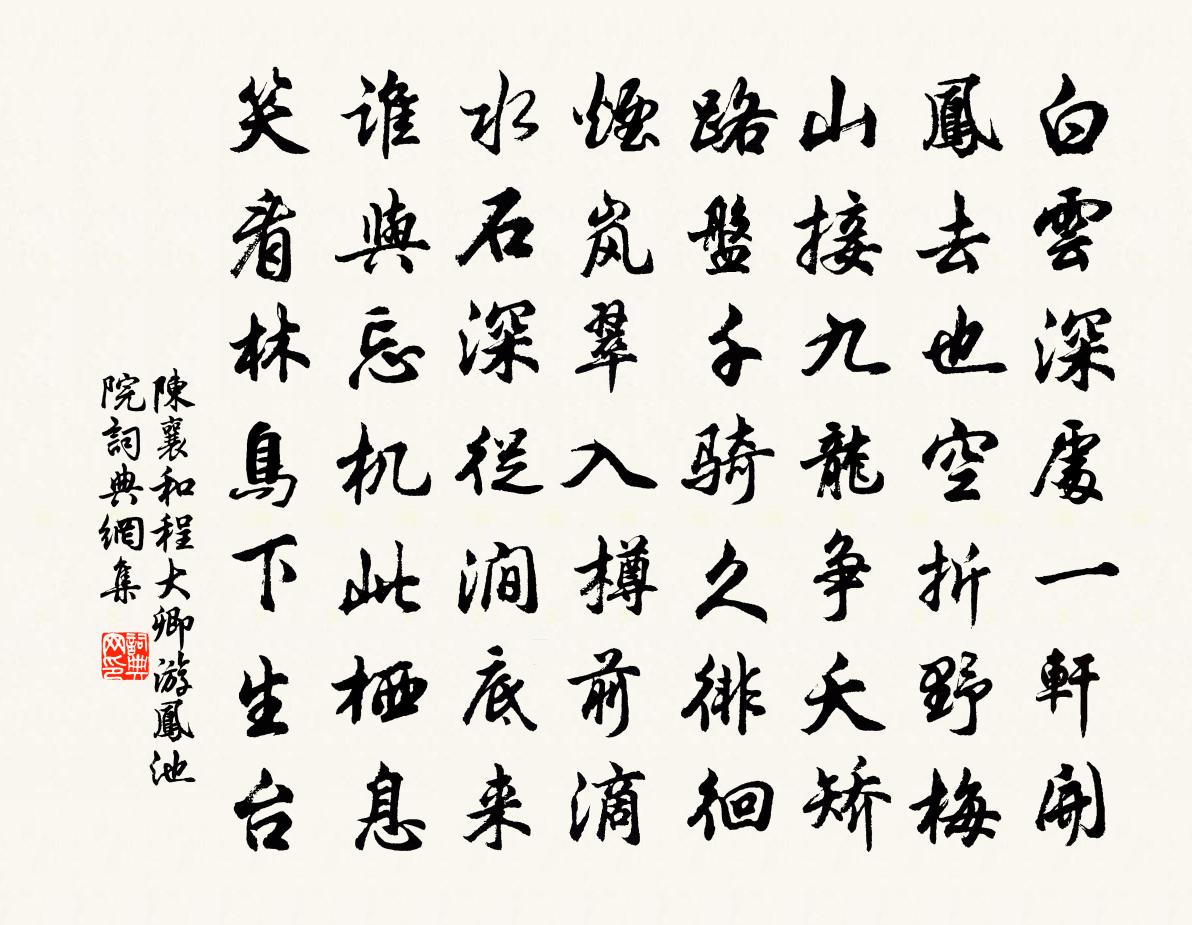 白雲深處一軒開
鳳去也空折野梅
山接九龍争夭矫
路盤千骑久徘徊
煙岚翠入樽前滴
水石深從澗底来
谁與忘机此栖息
笑看林鳥下生台
陳襄和程大卿游鳳池
院詞典網集
詞典
网印